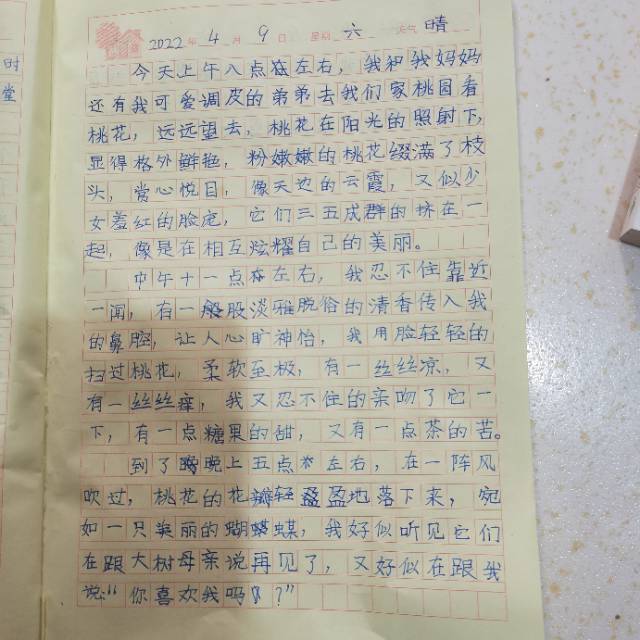 时
堂
2022年 4月 9日 星期 六 天气 晴
今天上午八点在左右，我和我妈妈
还有我可爱调皮的弟弟去我们家桃园看
桃花，远远望去，桃花在阳光的照射下，
显得格外鲜艳，粉嫩嫩的桃花缀满了枝
头，赏心悦目，像天边的云霞，又似少
女羞红的脸庞，它们三五成群的挤在一
起，像是在相互炫耀自己的美丽。
中午十一点左右，我忍不住靠近
一闻，有一股淡雅脱俗的清香传入我
的鼻腔，让人心旷神怡，我用脸轻轻的
扫过桃花，柔软至极，有一丝丝凉，又
有一丝丝痒，我又忍不住的亲吻了它一
下，有一点糖果的甜，又有一点茶的苦。
到了晚上五点左右，在一阵风
吹过，桃花的花瓣轻盈盈地落下来，宛
如一只美丽的蝴蝶，我好似听见它们
在跟大树母亲说再见了，又好似在跟我
说：“你喜欢我吗？”